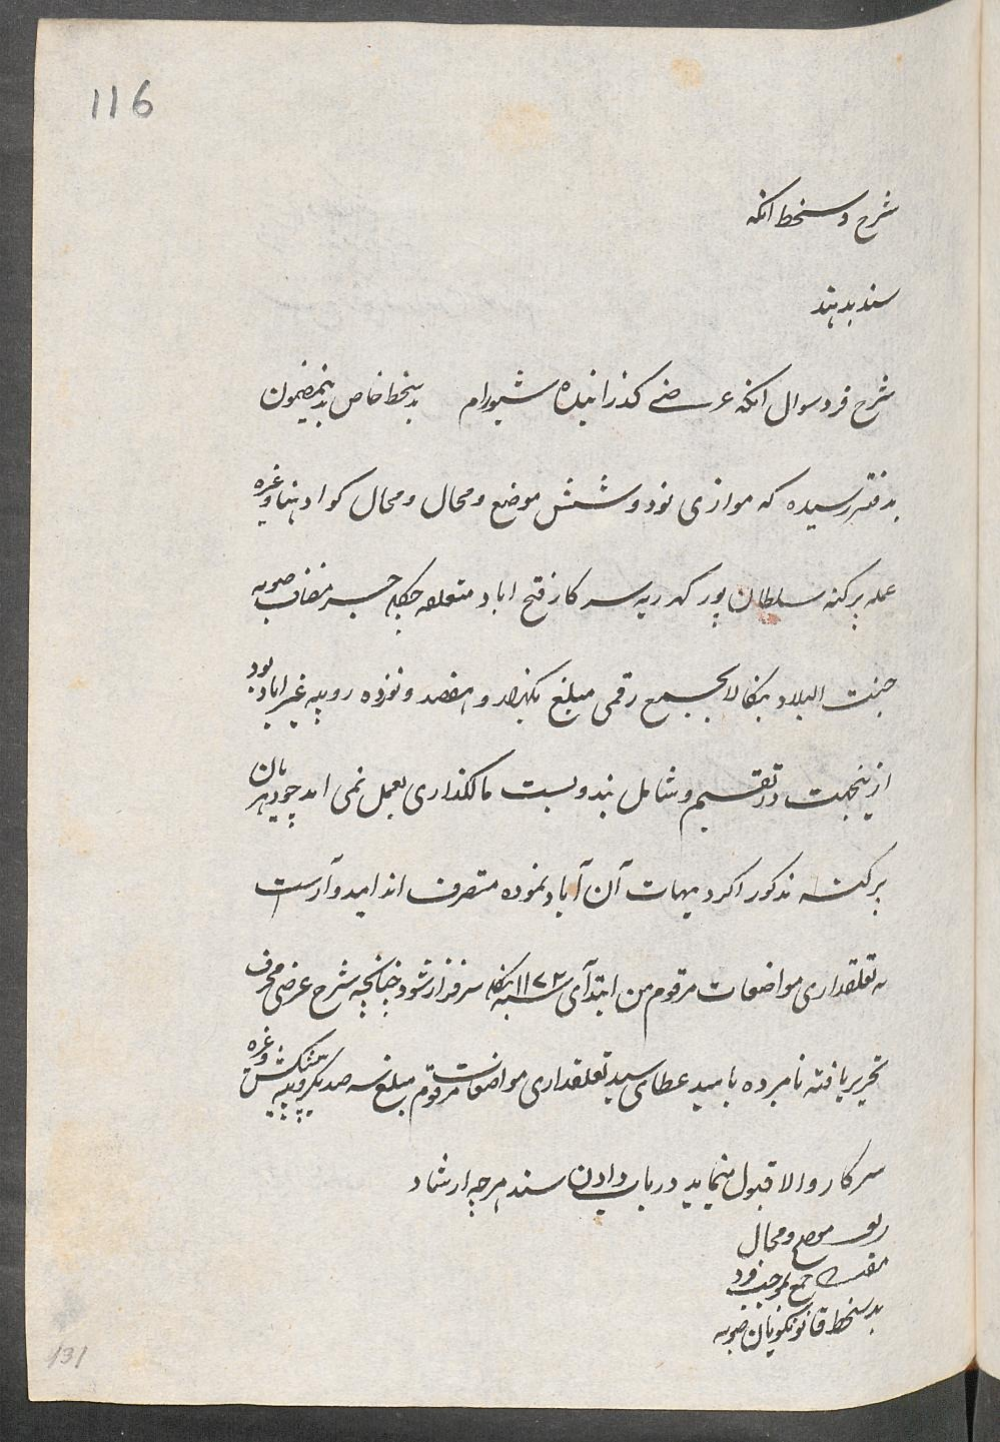 116
شرح دستخط انکه
سند بدهند
شرح فرد سوال انکه عرضے کذرانیده شیورام بدستخط خاص بدینمضمون
بدفتر رسیده که موازی نود و شش موضع و محال و محال کوادهنیا وغره
عمله پرکنه سلطان پور کهرریه سرکار فتح اباد متعلقه چکله مضاف صوبه
جنت البلاد بنکاله بجمع رقمی مبلغ یکهزار و هفصد و نوزده روپیه غیر اباد بود
ازینجهت در تقسیم و شامل بندوبست مالکذاری بعمل نمی امد چودهریان
پرکنه مذکور اکر دیهات آن آباد نموده متصرف اند امیدوارست
که تعلقداری مواضعات مرقوم من ابتدآی سنه ۱۱۷۳ بنکله سرفراز شود چنانچه شرح عرضی محرف
تحریر یافته نامبرده بامید عطای سند تعلقداری مواضعات مرقوم مبلغ سه صد یکروپیه پیشکش وغره
سرکار والا قبول مینماید درباب دادن سند هرچه ارشاد
موضع و محال
جمع بموجب فرد
بدستخط قانونکویان صوبه
131